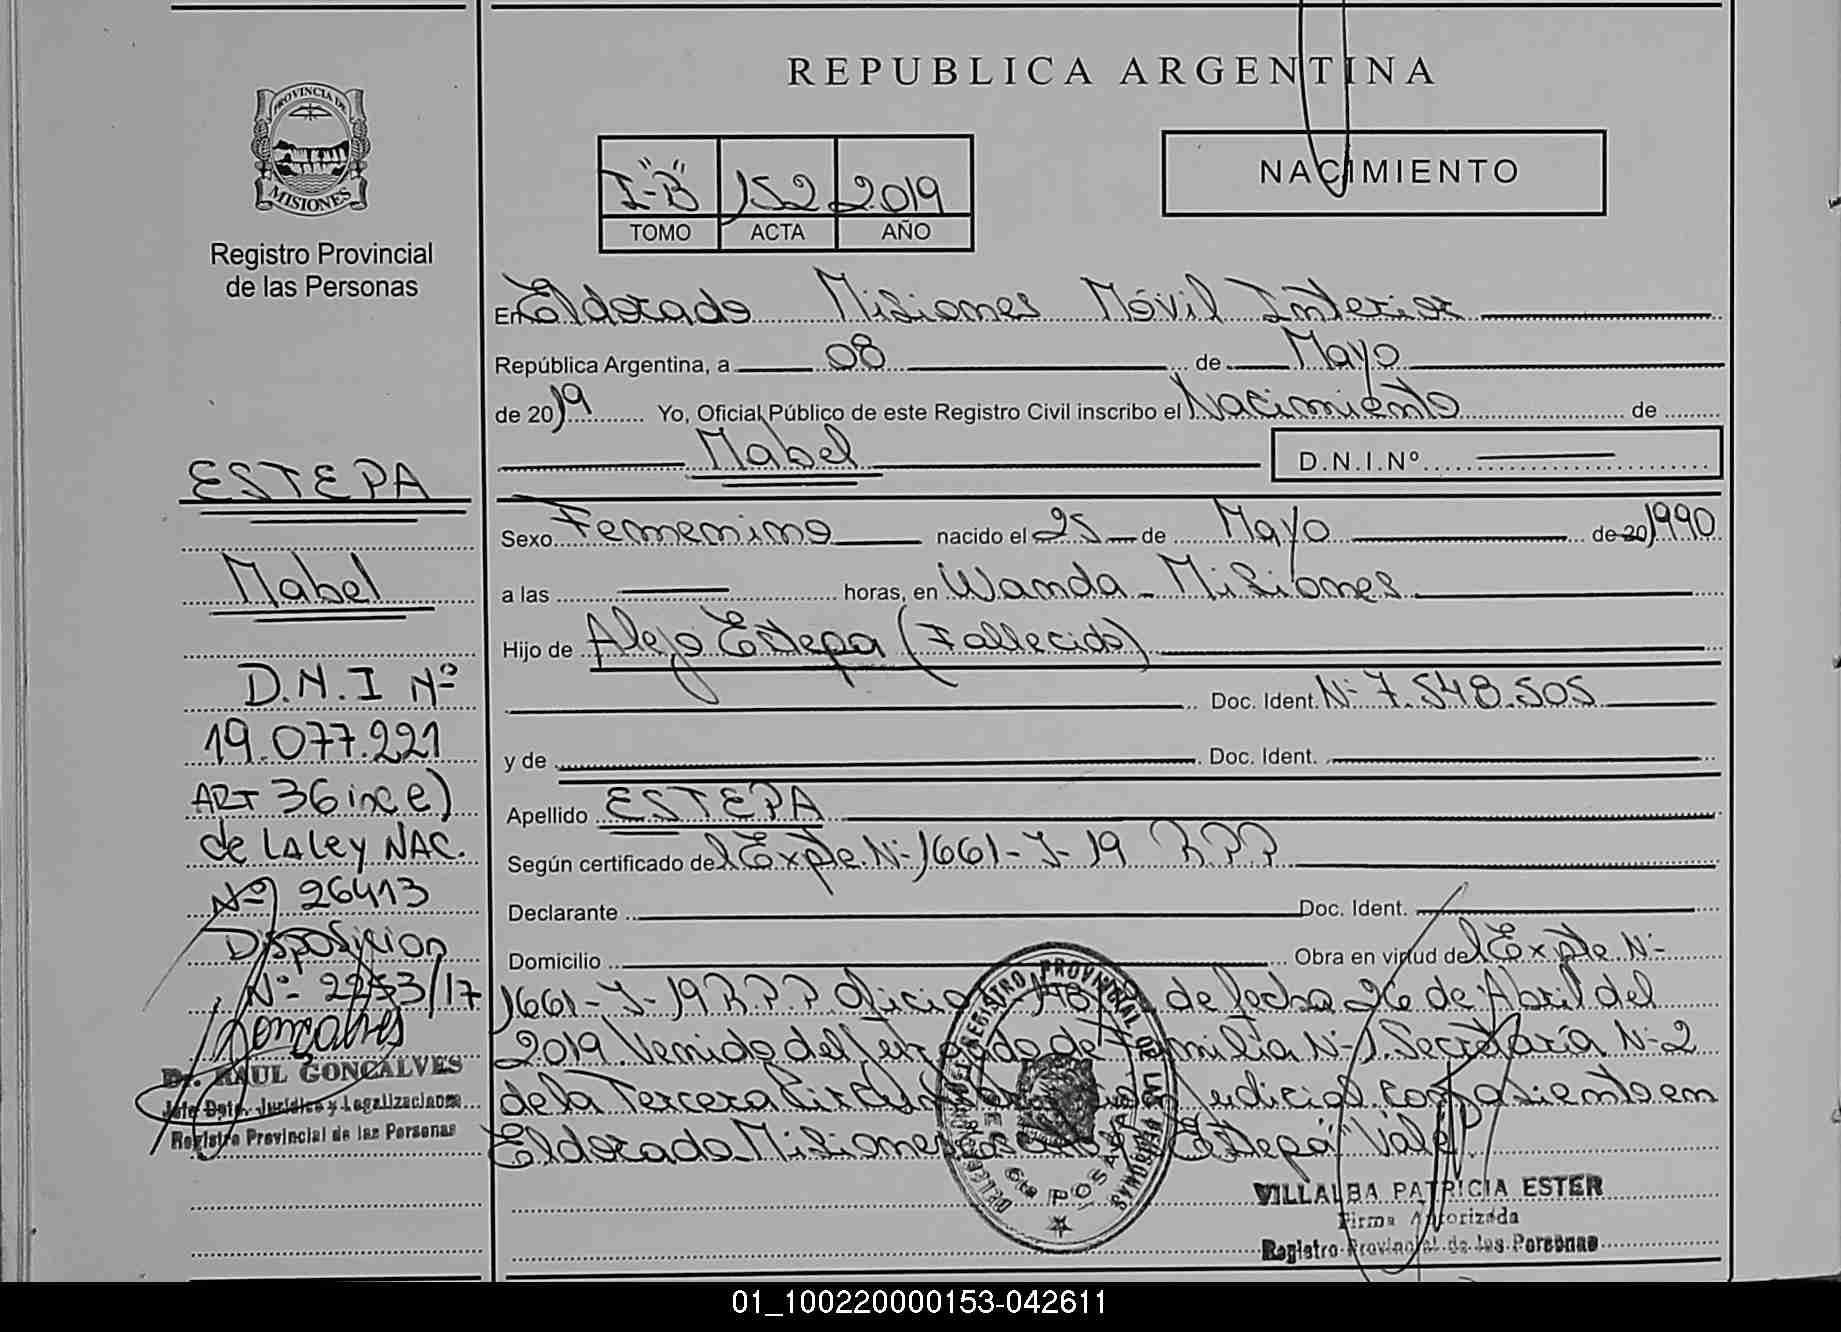 REPUBLICA ARGENTINA
PROVINCIA DE
MISIONES
Registro Provincial
de las Personas
I-"B" 152 2019
TOMO ACTA AÑO
NACIMIENTO
En Eldorado Misiones Móvil Interior
República Argentina, a 08 de Mayo
de 2019 Yo, Oficial Público de este Registro Civil inscribo el Nacimiento de
Mabel D.N.I.Nº
Sexo Femenino nacido el 25 de Mayo de 20 1990
a las horas, en Wanda - Misiones
Hijo de Alejo Estepa (Fallecido)
Doc. Ident. Nº 7.548.505
y de Doc. Ident.
Apellido ESTEPA
Según certificado del Expte. Nº 1661-J-19 R.P.P
Declarante Doc. Ident.
Domicilio Obra en virtud del Expte Nº
1661-J-19 R.P.P. Oficio de fecha 26 de Abril del
2019. Venido del de Familia Nº 1. Secretaría Nº 2
de la Tercera Judicial con asiento en
Eldorado Misiones Estepa" Vale
ESTEPA
Mabel
D.N.I Nº
19.077.221
ART 36 inc e)
de LA Ley NAC.
Nº 26413
Disposicion
Nº 2253/17
Gonçalves
Dr. RAUL GONCALVES
Jefe Dpto. Jurídico y Legalizaciones
Registro Provincial de las Personas
REGISTRO PROVINCIAL DE LAS PERSONAS
POSADAS
VILLALBA PATRICIA ESTER
Firma Autorizada
Registro Provincial de las Personas
01_100220000153-042611